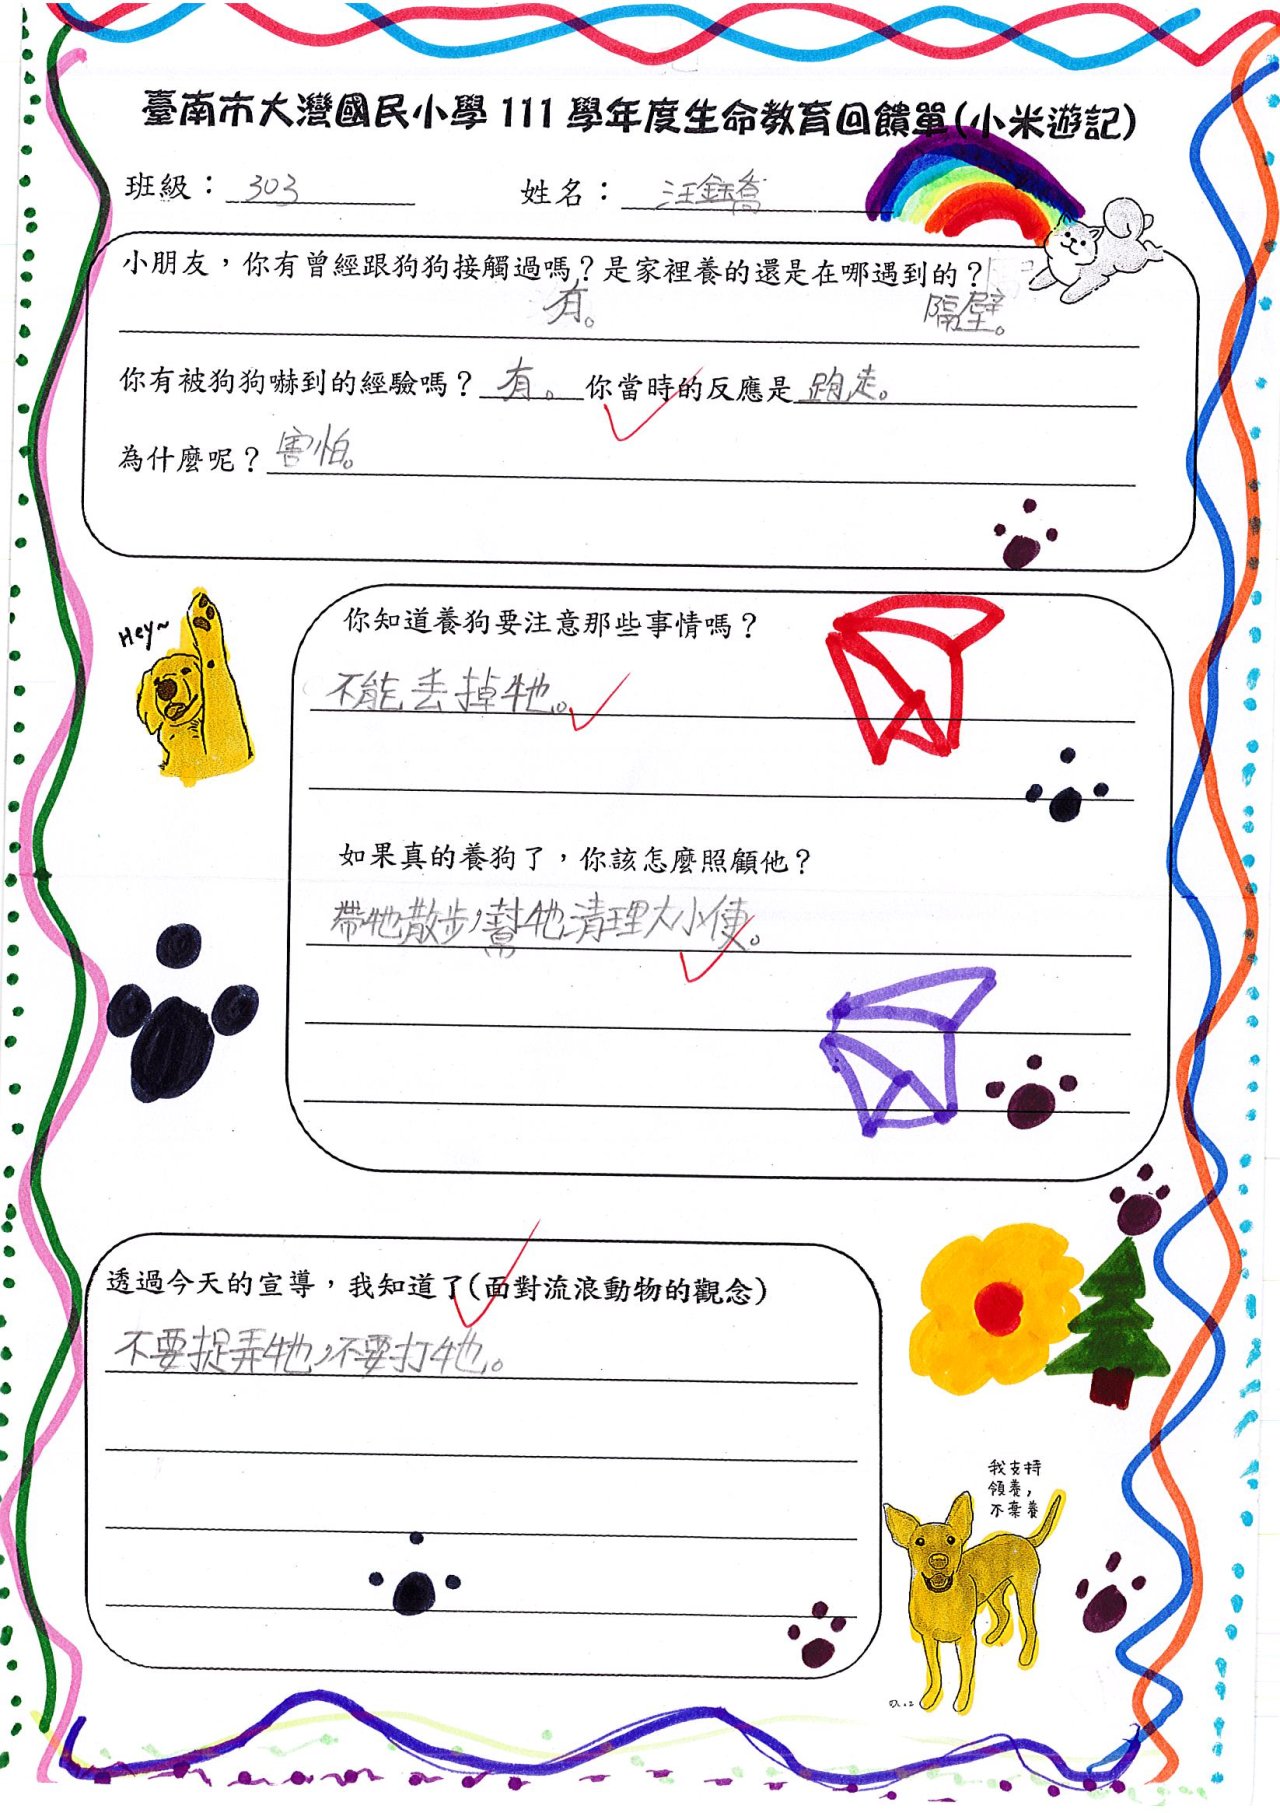 臺南市大灣國民小學 111 學年度生命教育回饋單(小米遊記)
班級：303 姓名：汪鈺喬
小朋友，你有曾經跟狗狗接觸過嗎？是家裡養的還是在哪遇到的？
有。 隔壁。
你有被狗狗嚇到的經驗嗎？有。你當時的反應是跑走。
為什麼呢？害怕。
Hey~
你知道養狗要注意那些事情嗎？
不能丟掉牠。
如果真的養狗了，你該怎麼照顧他？
帶牠散步，幫牠清理大小便。
透過今天的宣導，我知道了(面對流浪動物的觀念)
不要捉弄牠，不要打牠。
我支持
領養，
不棄養